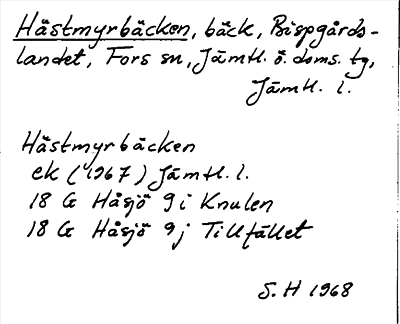 Hästmyrbäcken, bäck, Bispgårds-
landet, Fors sn, Jämtl. ö. doms. tg,
Jämtl. l.
Hästmyrbäcken
ek (1967) Jämtl. l.
18 G Håsjö 9i Knulen
18 G Håsjö 9j Tillfället
S. H 1968